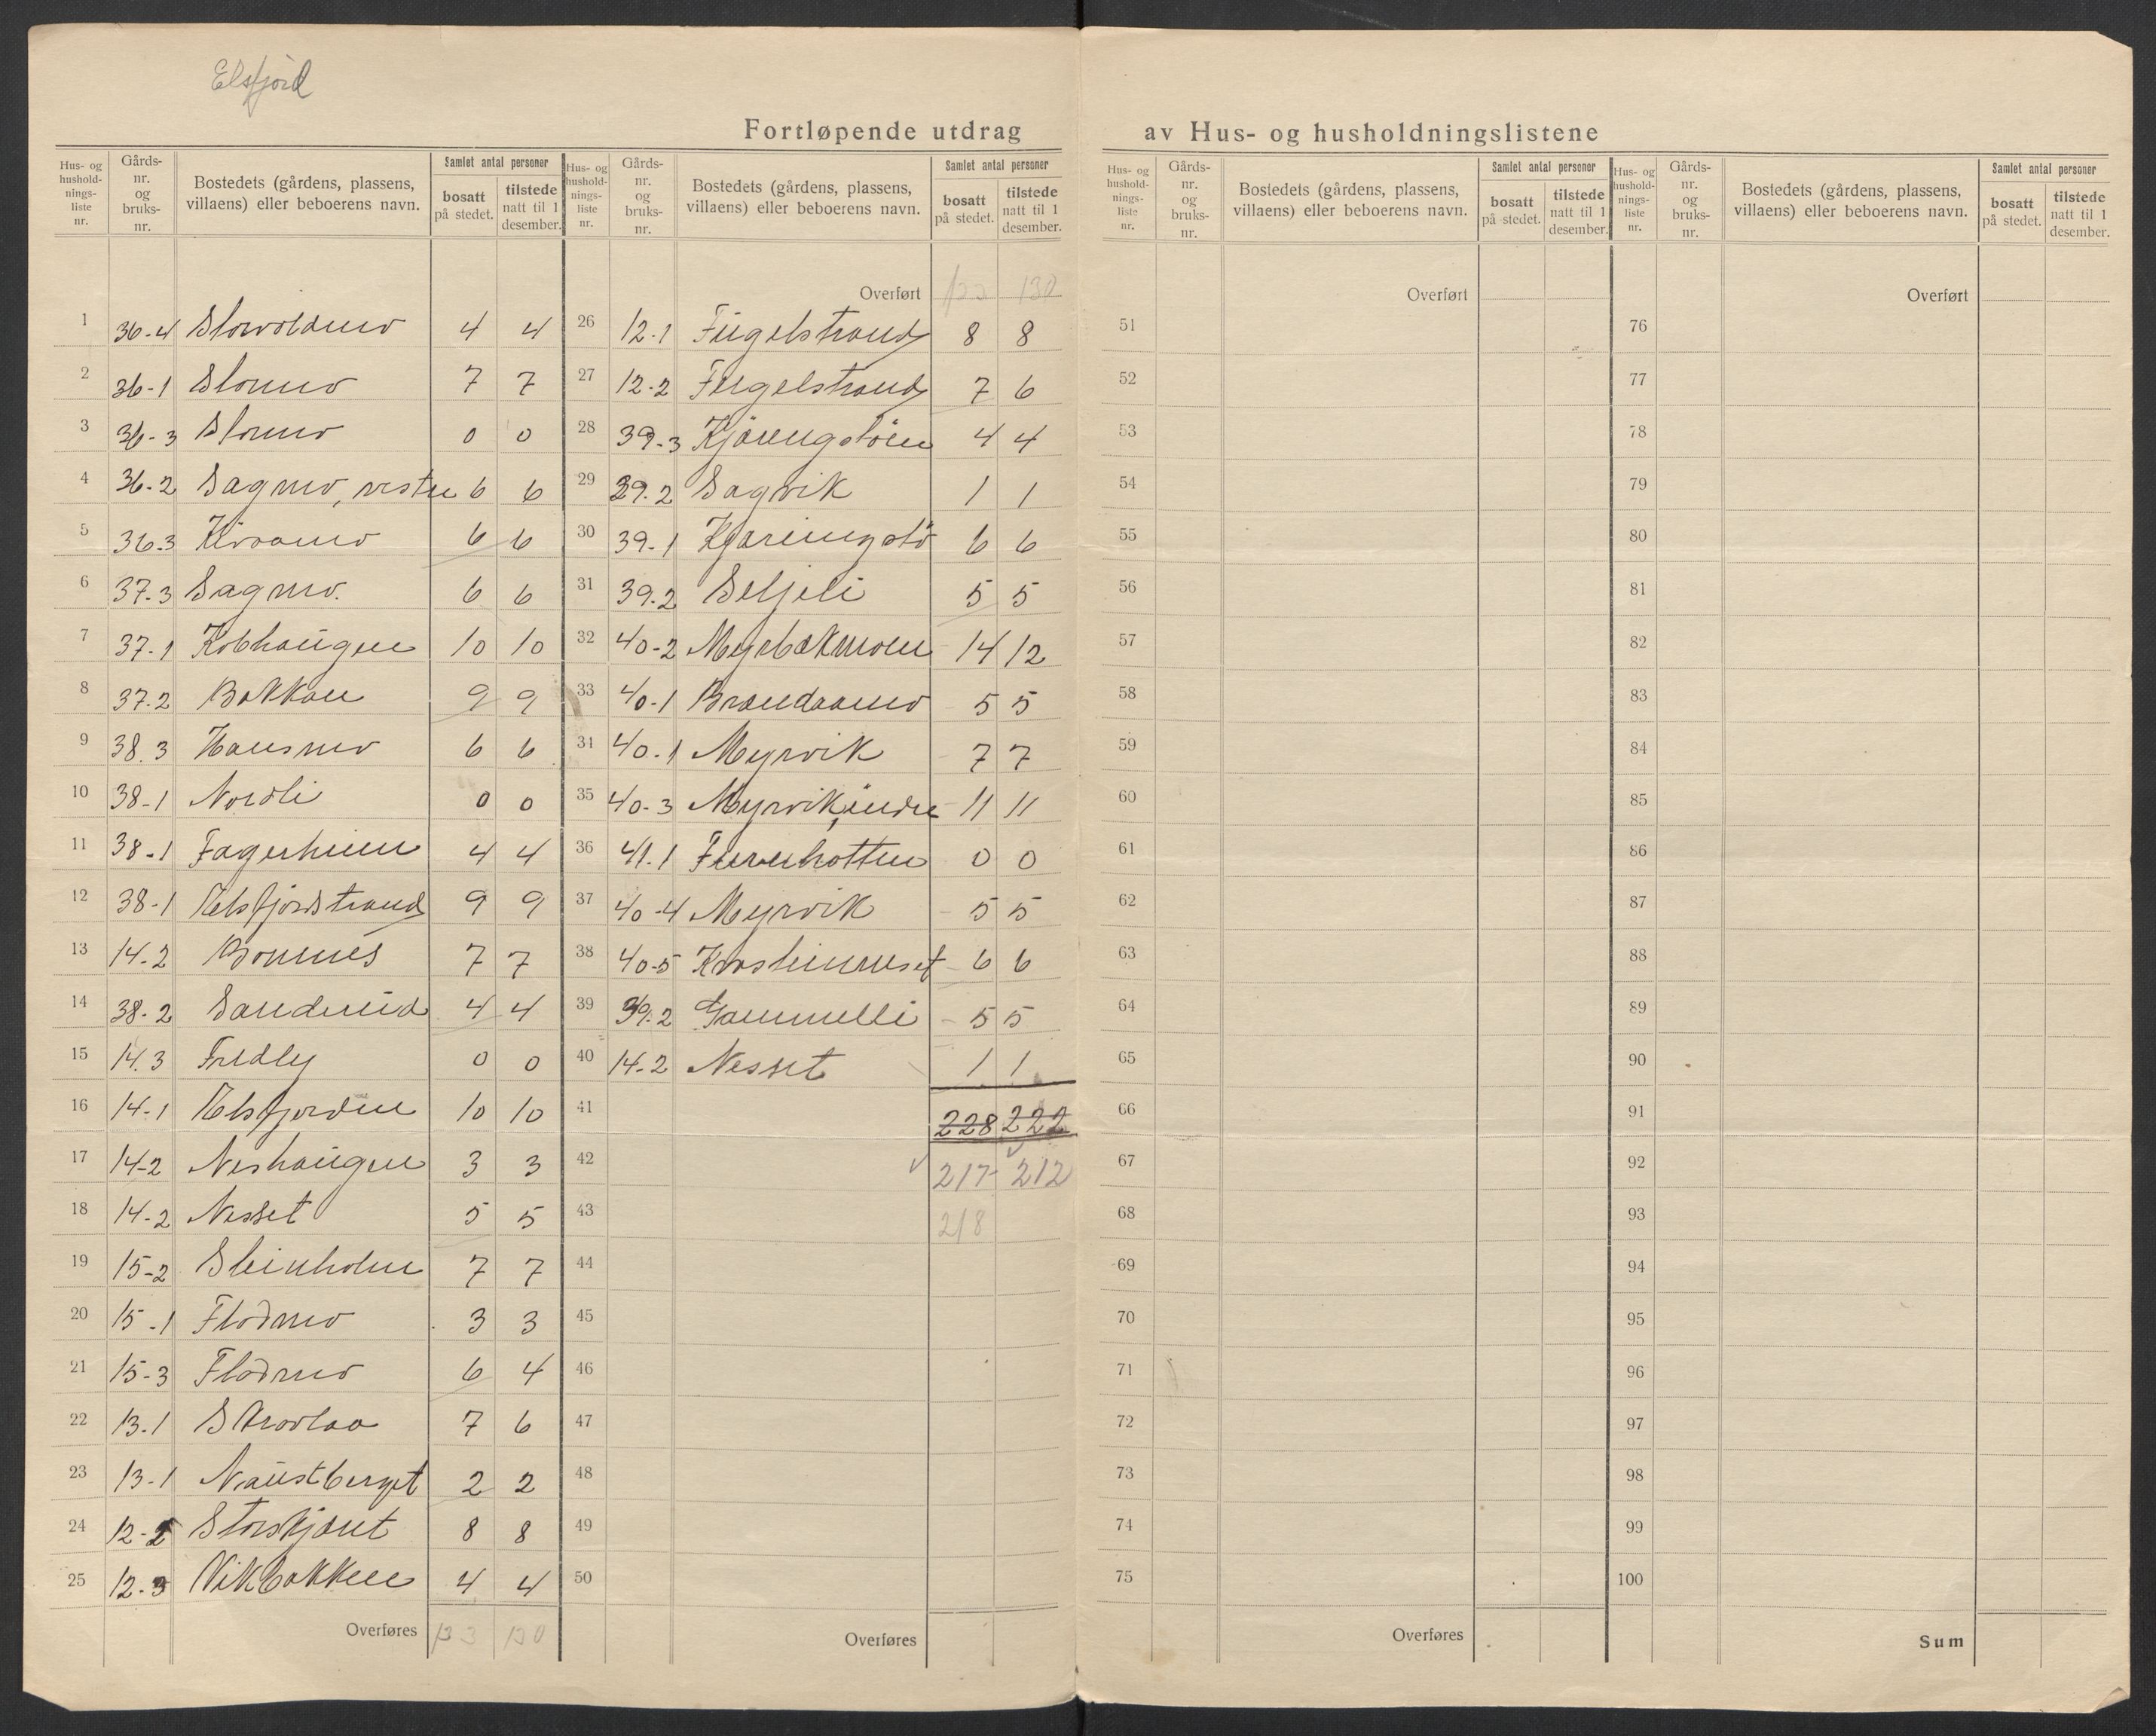 Elsfjord
Fortløpende utdrag av Hus- og husholdningslistene
Hus- og husholdnings-liste nr. Gårds-nr. og bruks-nr. Bostedets (gårdens, plassens, villaens) eller beboerens navn. Samlet antal personer bosatt på stedet. tilstede natt til 1 desember.
1 36-4 Storvoldmo 4 4
2 36-1 Stormo 7 7
3 36-3 Stormo 0 0
4 36-2 Sagmo, vestre 6 6
5 36.3 6 6
6 37.3 Sagmo. 6 6
7 37.1 Kobhaugen 10 10
8 37.2 Bakkan 9 9
9 38.3 Hansmo 6 6
10 38-1 Nordli 0 0
11 38-1 Fagerheim 4 4
12 38-1 Elsfjordstrand 9 9
13 14-2 Bonnes 7 7
14 38-2 Sandmid 4 4
15 14.3 Fredly 0 0
16 14-1 Elsfjorden 10 10
17 14-2 Neshaugen 3 3
18 14-2 Nesset 5 5
19 15-2 Steinholm 7 7
20 15-1 Flodmo 3 3
21 15-3 Flodmo 6 4
22 13.1 Stravlaa 7 6
23 13-1 Naustberget 2 2
24 12-2 Storskjæret 8 8
25 12-3 Vikbakken 4 4
Overføres 133 130
Hus- og husholdnings-liste nr. Gårds-nr. og bruks-nr. Bostedets (gårdens, plassens, villaens) eller beboerens navn. Samlet antal personer bosatt på stedet. tilstede natt til 1 desember.
Overført 133 130
26 12.1 Fugelstrand 8 8
27 12-2 Fugelstrand 7 6
28 39-3 Kjæringstöen 4 4
29 39.2 Sagvik 1 1
30 39-1 Kjæringstö 6 6
31 39.2 Seljeli 5 5
32 40-2 Myrbakmoen 14 12
33 40-1 Brændaamo 5 5
34 40-1 Myrvik 7 7
35 40-3 Myrvik, indre 11 11
36 41.1 Furuhatten 0 0
37 40-4 Myrvik 5 5
38 40-5 6 6
39 39.2 Gammelli 5 5
40 14-2 Nesset 1 1
41 228 222
42 217 212
43 218
44
45
46
47
48
49
50
Overføres
Hus- og husholdnings-liste nr. Gårds-nr. og bruks-nr. Bostedets (gårdens, plassens, villaens) eller beboerens navn. Samlet antal personer bosatt på stedet. tilstede natt til 1 desember.
Overført
51
52
53
54
55
56
57
58
59
60
61
62
63
64
65
66
67
68
69
70
71
72
73
74
75
Overføres
Hus- og husholdnings-liste nr. Gårds-nr. og bruks-nr. Bostedets (gårdens, plassens, villaens) eller beboerens navn. Samlet antal personer bosatt på stedet. tilstede natt til 1 desember.
Overført
76
77
78
79
80
81
82
83
84
85
86
87
88
89
90
91
92
93
94
95
96
97
98
99
100
Sum